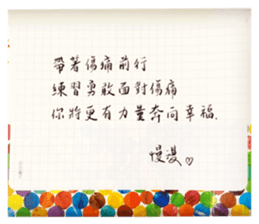 帶著傷痛前行
練習勇敢面對傷痛
你將更有力量奔向幸福.
慢漫♡